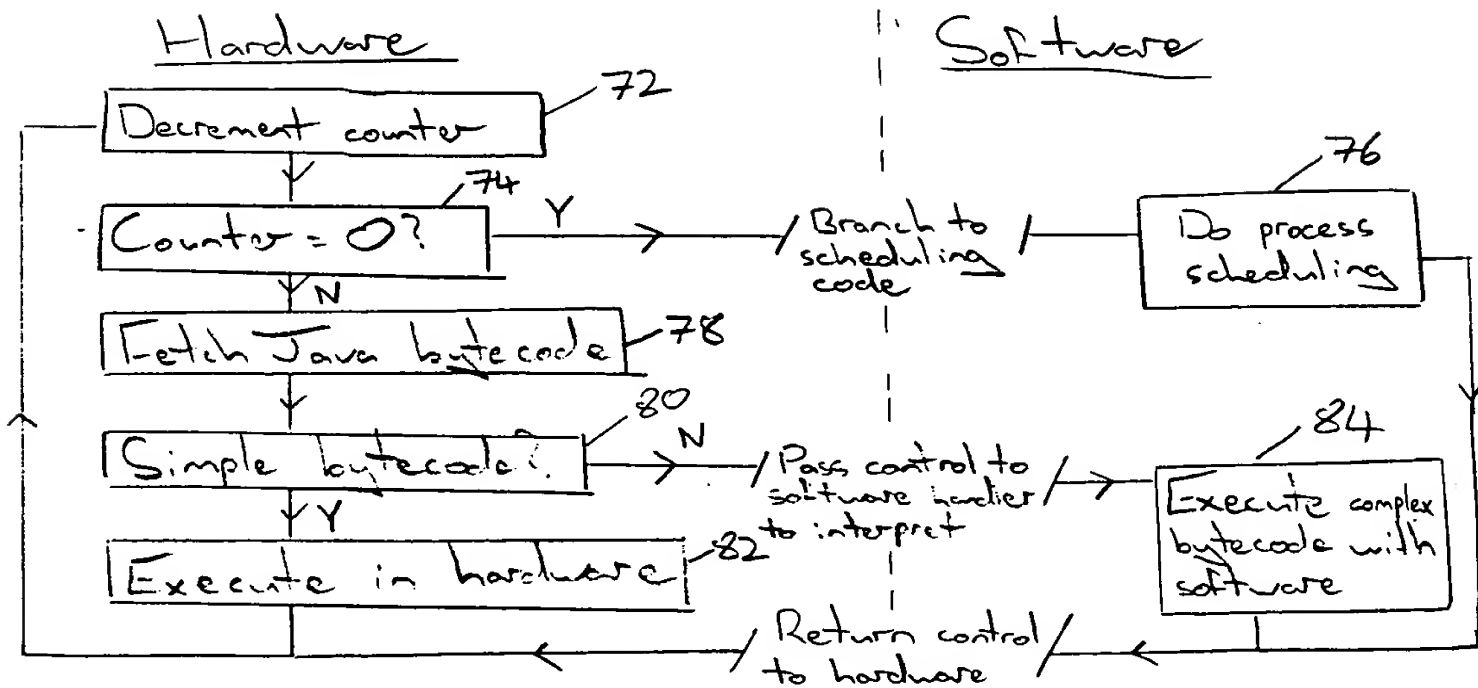 Hardware
Software
72
Decrement counter
74
Counter = 0?
Y
Branch to
scheduling
code
76
Do process
scheduling
N
78
Fetch Java bytecode
80
Simple bytecode?
N
Pass control to
software handler
to interpret
84
Execute complex
bytecode with
software
Y
82
Execute in hardware
Return control
to hardware